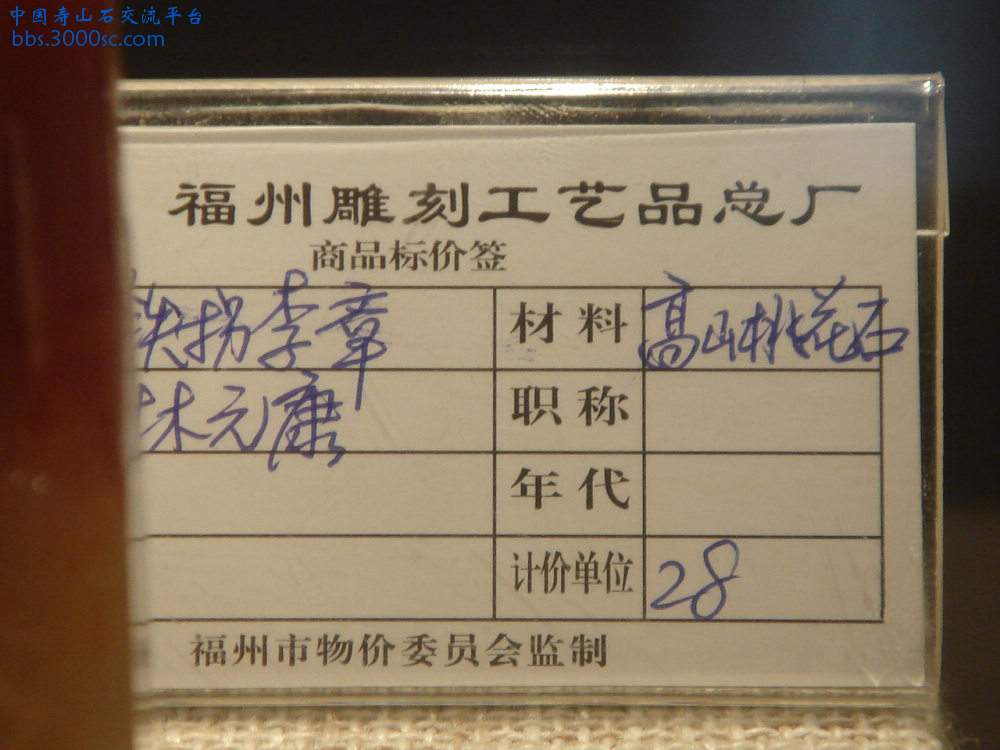 中国寿山石交流平台
bbs.3000sc.com
福州雕刻工艺品总厂
商品标价签
铁拐李章 材料 高山桃花石
林元康 职称
年代
计价单位 28
福州市物价委员会监制